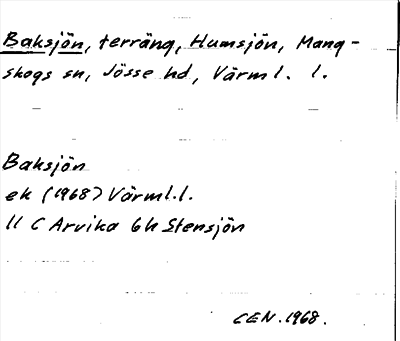 Baksjön, terräng, Humsjön, Mang-
skogs sn, Jösse hd, Värml. l.
Baksjön
ek (1968) Värml.l.
11 C Arvika 6h Stensjön
CEN. 1968.